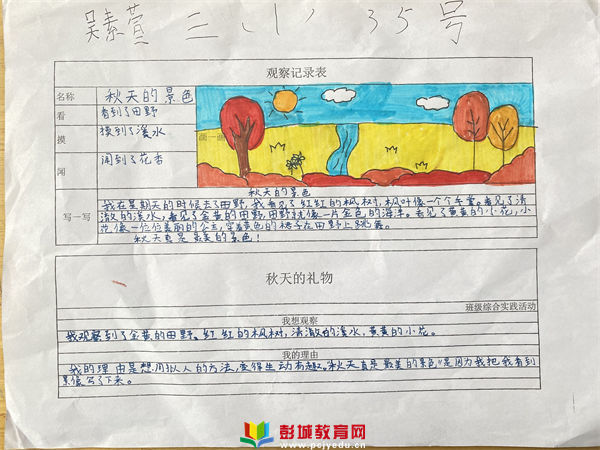 吴素萱 三(八) 35号
观察记录表
名称 秋天的景色
看 看到了田野
摸 摸到了溪水
画一画
闻 闻到了花香
秋天的景色
我在星期天的时候去了田野,我看见了红红的枫树,枫叶像一个个手掌。看见了清
澈的溪水,看见了金黄的田野,田野就像一片金色的海洋。看见了黄黄的小花,小
写一写
花像一位位美丽的公主,穿着黄色的裙子在田野上跳舞。
秋天真是最美的景色!
秋天的礼物
班级综合实践活动
我想观察
我观察到了金黄的田野、红红的枫树,清澈的溪水,黄黄的小花。
我的理由
我的理由是想用拟人的方法,变得生动有趣。"秋天真是最美的景色"是因为我把我看到
景像写了下来。
彭城教育网
www.pcjyedu.cn